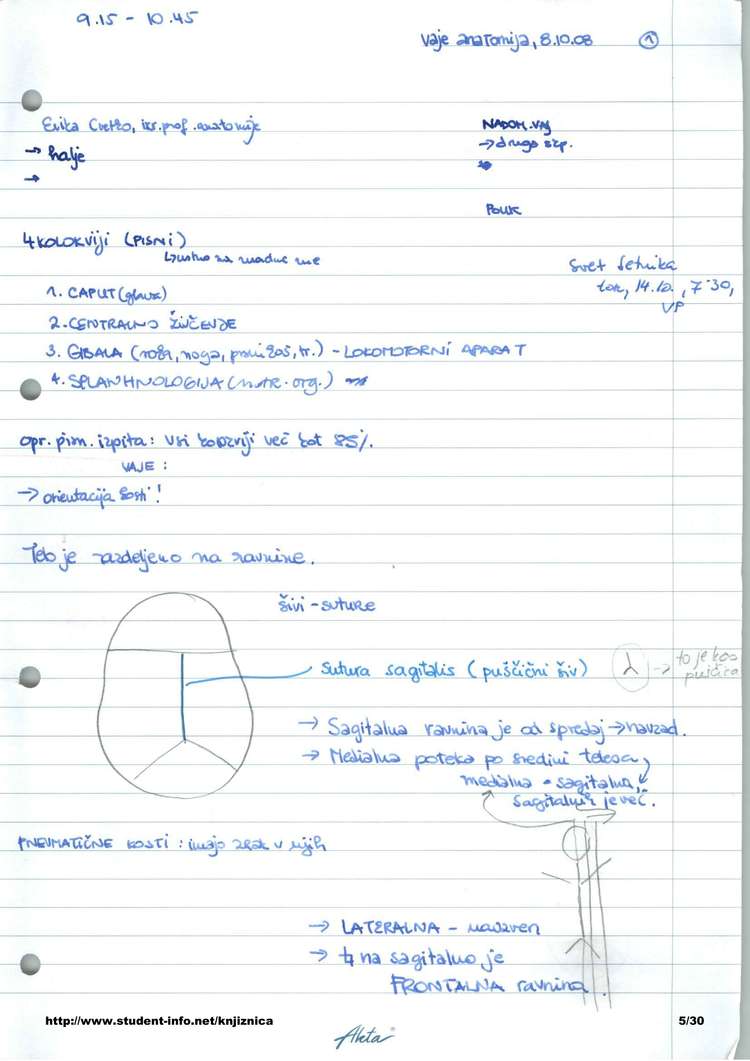 9.15 - 10.45
Vaje anatomija, 8.10.08 1
Erika Cvetko, izr. prof. anatomije
→ halje
→
NADOM. VAJ
→ drugo
POUK
4 KOLOKVIJI (PISNI)
Svet letnika
tor, 14.10., 7.30,
VP
1. CAPUT (glava)
2. CENTRALNO ŽIVČEVJE
3. GIBALA (roka, noga, tr.) - LOKOMOTORNI APARAT
4. SPLANHNOLOGIJA (notr. org.)
opr. izpita: vsi kolokviji več kot 85%.
VAJE:
→ orientacija kosti!
Telo je razdeljeno na ravnine.
šivi - suture
Sutura sagitalis (puščični šiv)
→ to je kot
puščica
→ Sagitalna ravnina je od spredaj → navzad.
→ Medialna poteka po sredini telesa,
medialna = sagitalna,
sagitalnih je več.
PNEVMATIČNE KOSTI: imajo zrak v njih
→ LATERALNA - navzven
→ na sagitalno je
FRONTALNA ravnina.
http://www.student-info.net/knjiznica
5/30
Aleta